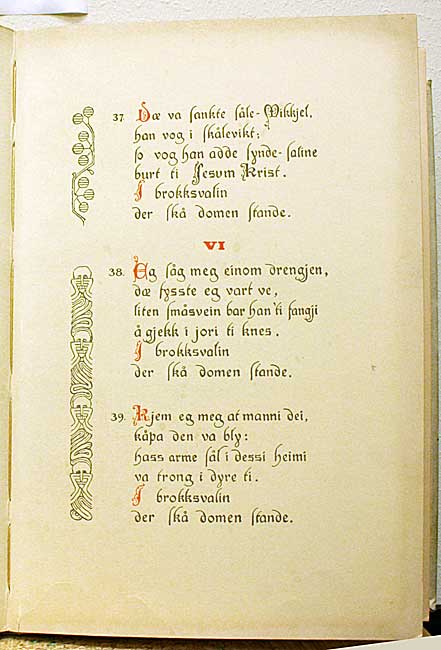 37. Dæ va sankte såle-Mikkjel,
han vog i skålevikt;
so vog han adde synde-saline
burt ti Jesum Krist.
I brokksvalin
der skå domen stande.
VI
38. Eg såg meg einom drengjen,
dæ fysste eg vart ve,
liten småsvein bar han ti fangji
å gjekk i jori ti knes.
I brokksvalin
der skå domen stande.
39. Kjem eg meg at manni dei,
kåpa den va bly:
hass arme sål i dessi heimi
va trong i dyre ti.
I brokksvalin
der skå domen stande.